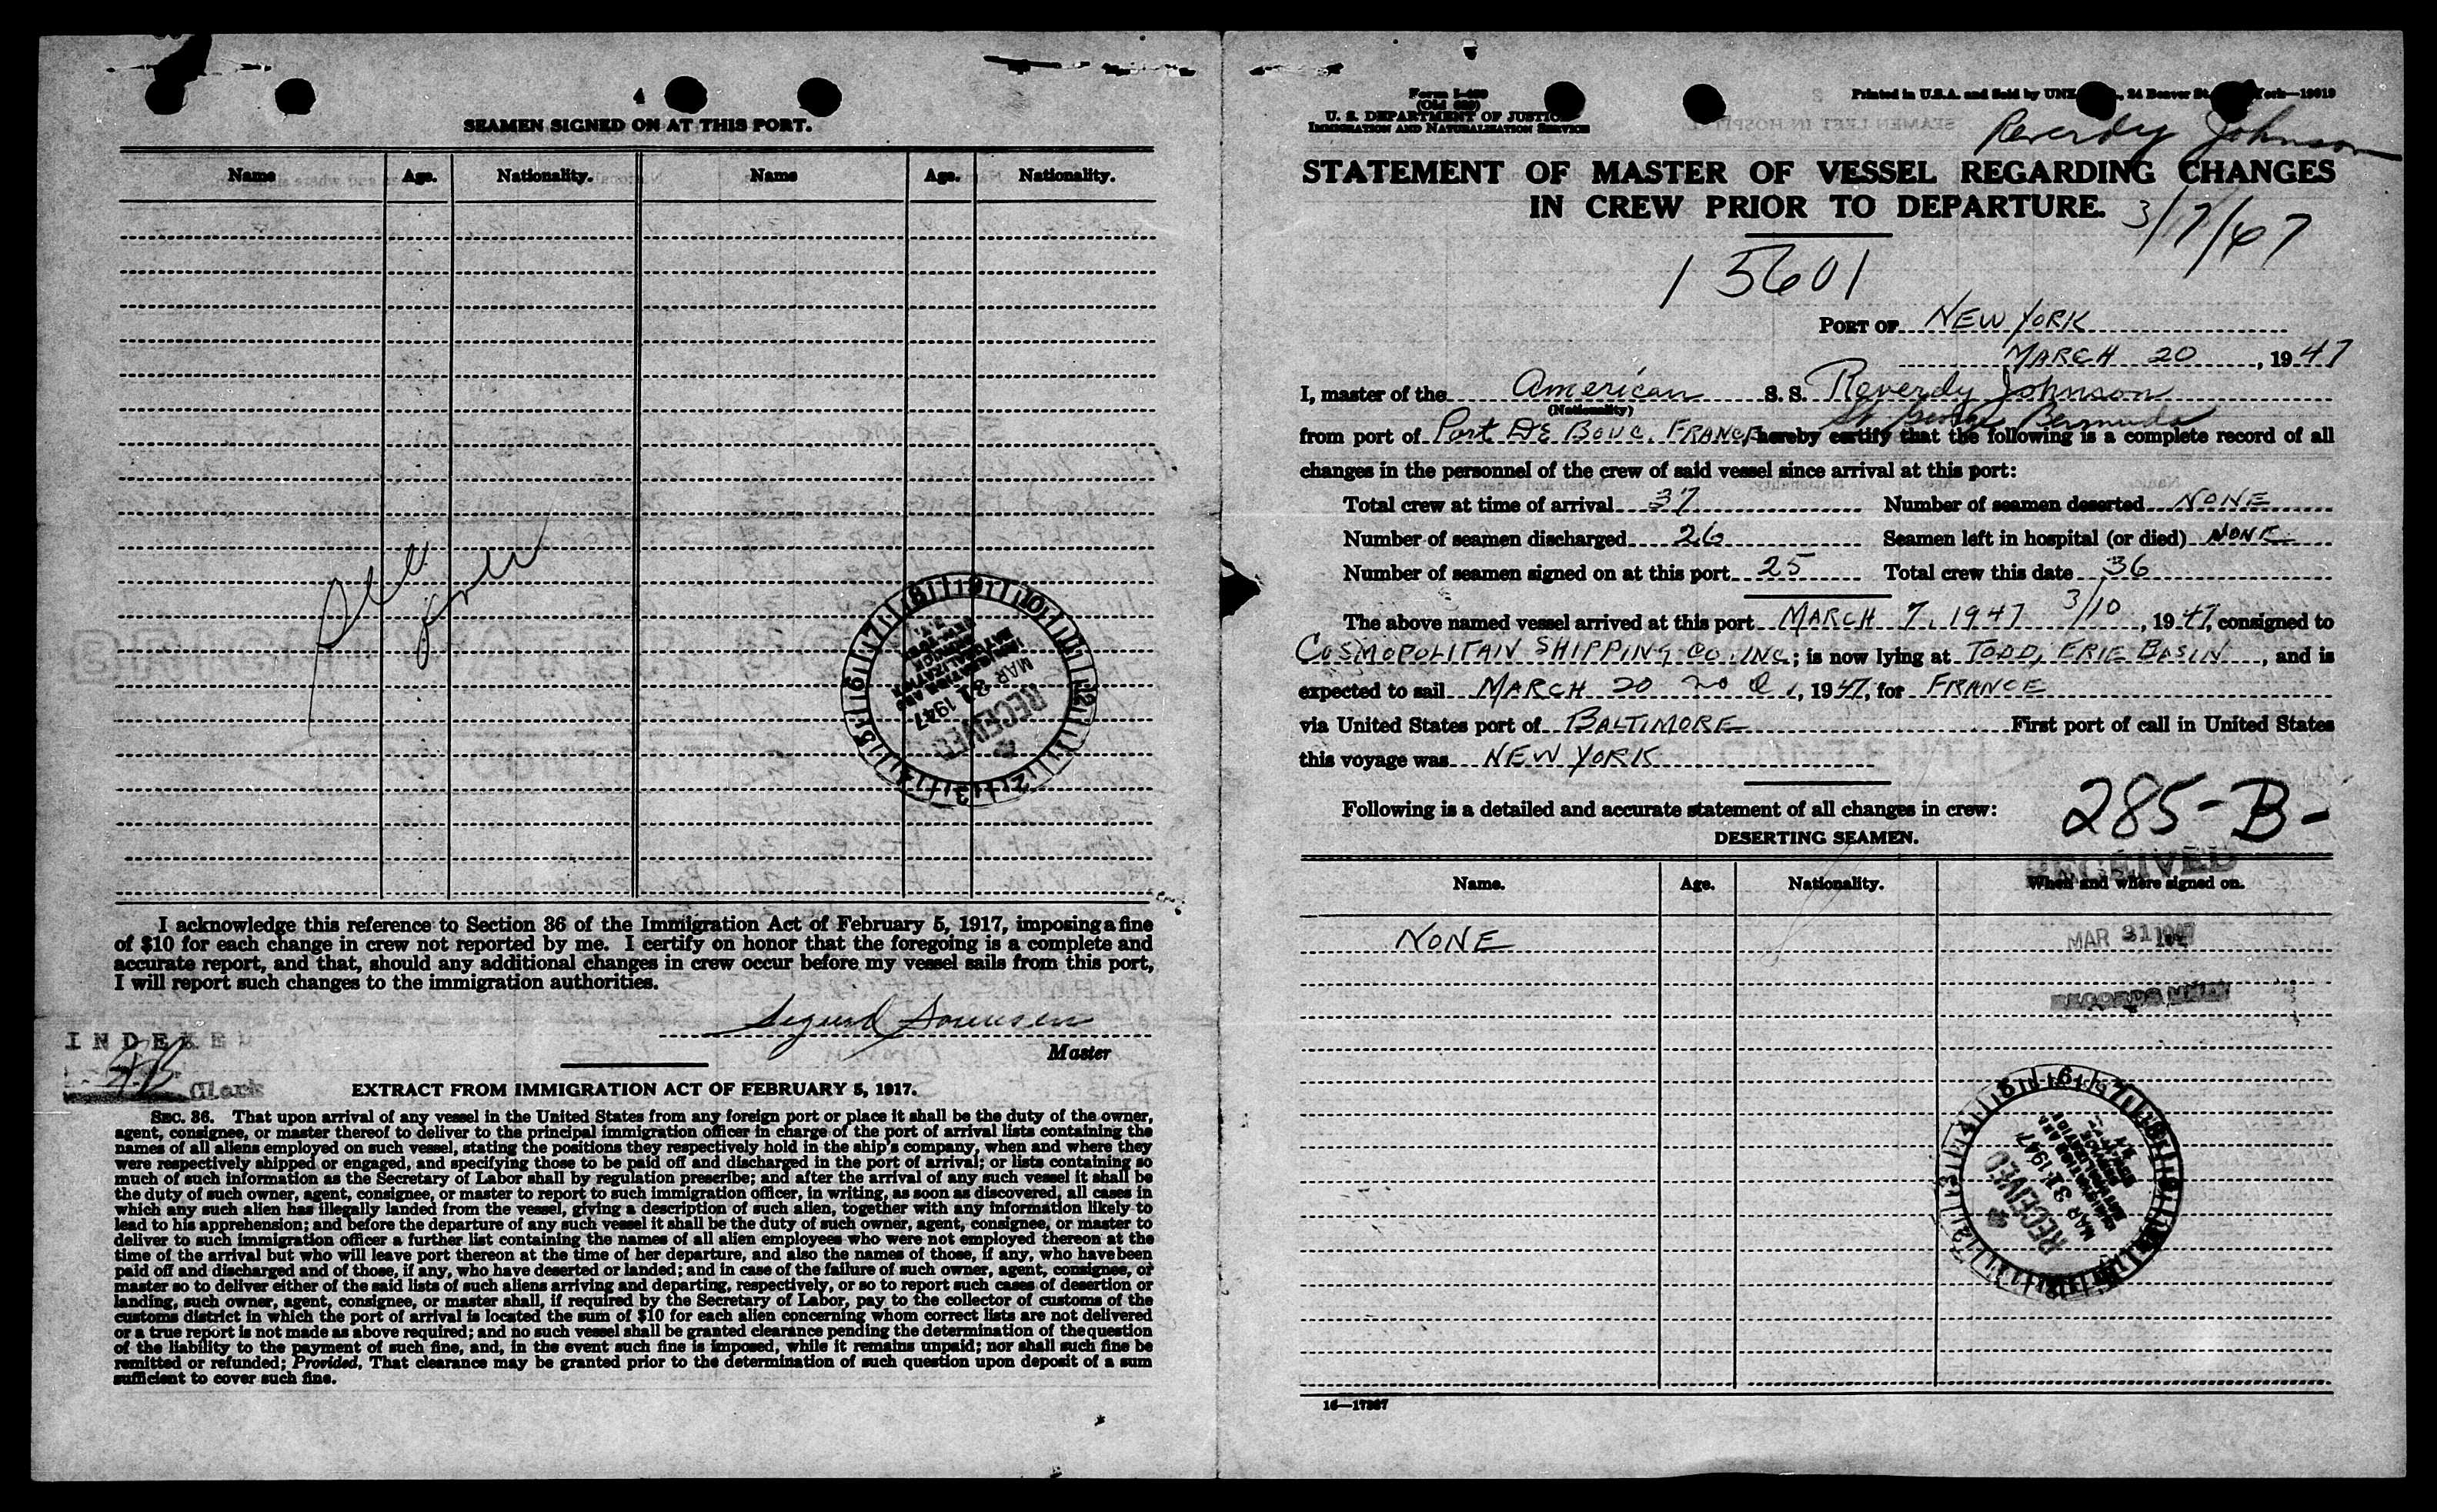 4
SEAMEN SIGNED ON AT THIS PORT.
Name Age. Nationality. Name Age. Nationality.
RECEIVED
MAR 31 1947
I acknowledge this reference to Section 36 of the Immigration Act of February 5, 1917, imposing a fine
of $10 for each change in crew not reported by me. I certify on honor that the foregoing is a complete and
accurate report, and that, should any additional changes in crew occur before my vessel sails from this port,
I will report such changes to the immigration authorities.
Sigurd Sorensen
Master
INDEXED
Clerk
EXTRACT FROM IMMIGRATION ACT OF FEBRUARY 5, 1917.
SEC. 36. That upon arrival of any vessel in the United States from any foreign port or place it shall be the duty of the owner,
agent, consignee, or master thereof to deliver to the principal immigration officer in charge of the port of arrival lists containing the
names of all aliens employed on such vessel, stating the positions they respectively hold in the ship's company, when and where they
were respectively shipped or engaged, and specifying those to be paid off and discharged in the port of arrival; or lists containing so
much of such information as the Secretary of Labor shall by regulation prescribe; and after the arrival of any such vessel it shall be
the duty of such owner, agent, consignee, or master to report to such immigration officer, in writing, as soon as discovered, all cases in
which any such alien has illegally landed from the vessel, giving a description of such alien, together with any information likely to
lead to his apprehension; and before the departure of any such vessel it shall be the duty of such owner, agent, consignee, or master to
deliver to such immigration officer a further list containing the names of all alien employees who were not employed thereon at the
time of the arrival but who will leave port thereon at the time of her departure, and also the names of those, if any, who have been
paid off and discharged and of those, if any, who have deserted or landed; and in case of the failure of such owner, agent, consignee, or
master so to deliver either of the said lists of such aliens arriving and departing, respectively, or so to report such cases of desertion or
landing, such owner, agent, consignee, or master shall, if required by the Secretary of Labor, pay to the collector of customs of the
customs district in which the port of arrival is located the sum of $10 for each alien concerning whom correct lists are not delivered
or a true report is not made as above required; and no such vessel shall be granted clearance pending the determination of the question
of the liability to the payment of such fine, and, in the event such fine is imposed, while it remains unpaid; nor shall such fine be
remitted or refunded; Provided, That clearance may be granted prior to the determination of such question upon deposit of a sum
sufficient to cover such fine.
Printed in U.S.A. and Sold by UNZ 24 Beaver St. York—19019
U. S. DEPARTMENT OF JUSTICE
IMMIGRATION AND NATURALIZATION SERVICE
Reverdy Johnson
STATEMENT OF MASTER OF VESSEL REGARDING CHANGES
IN CREW PRIOR TO DEPARTURE.
3/7/47
15601
PORT OF NEW YORK
MARCH 20, 1947
I, master of the American S. S. Reverdy Johnson
(Nationality)
St George Bermuda
from port of Port DE BOUC, FRANCE, hereby certify that the following is a complete record of all
changes in the personnel of the crew of said vessel since arrival at this port:
Total crew at time of arrival 37 Number of seamen deserted NONE
Number of seamen discharged 26 Seamen left in hospital (or died) NONE
Number of seamen signed on at this port 25 Total crew this date 36
The above named vessel arrived at this port MARCH 7, 1947 3/10, 1947, consigned to
COSMOPOLITAIN SHIPPING CO. INC.; is now lying at TODD, ERIE BASIN, and is
expected to sail MARCH 20, 1947, for FRANCE
via United States port of BALTIMORE First port of call in United States
this voyage was NEW YORK
Following is a detailed and accurate statement of all changes in crew:
285-B-
DESERTING SEAMEN.
RECEIVED
Name. Age. Nationality. When and where signed on.
NONE
MAR 31 1947
RECEIVED
MAR 31 1947
16—17267